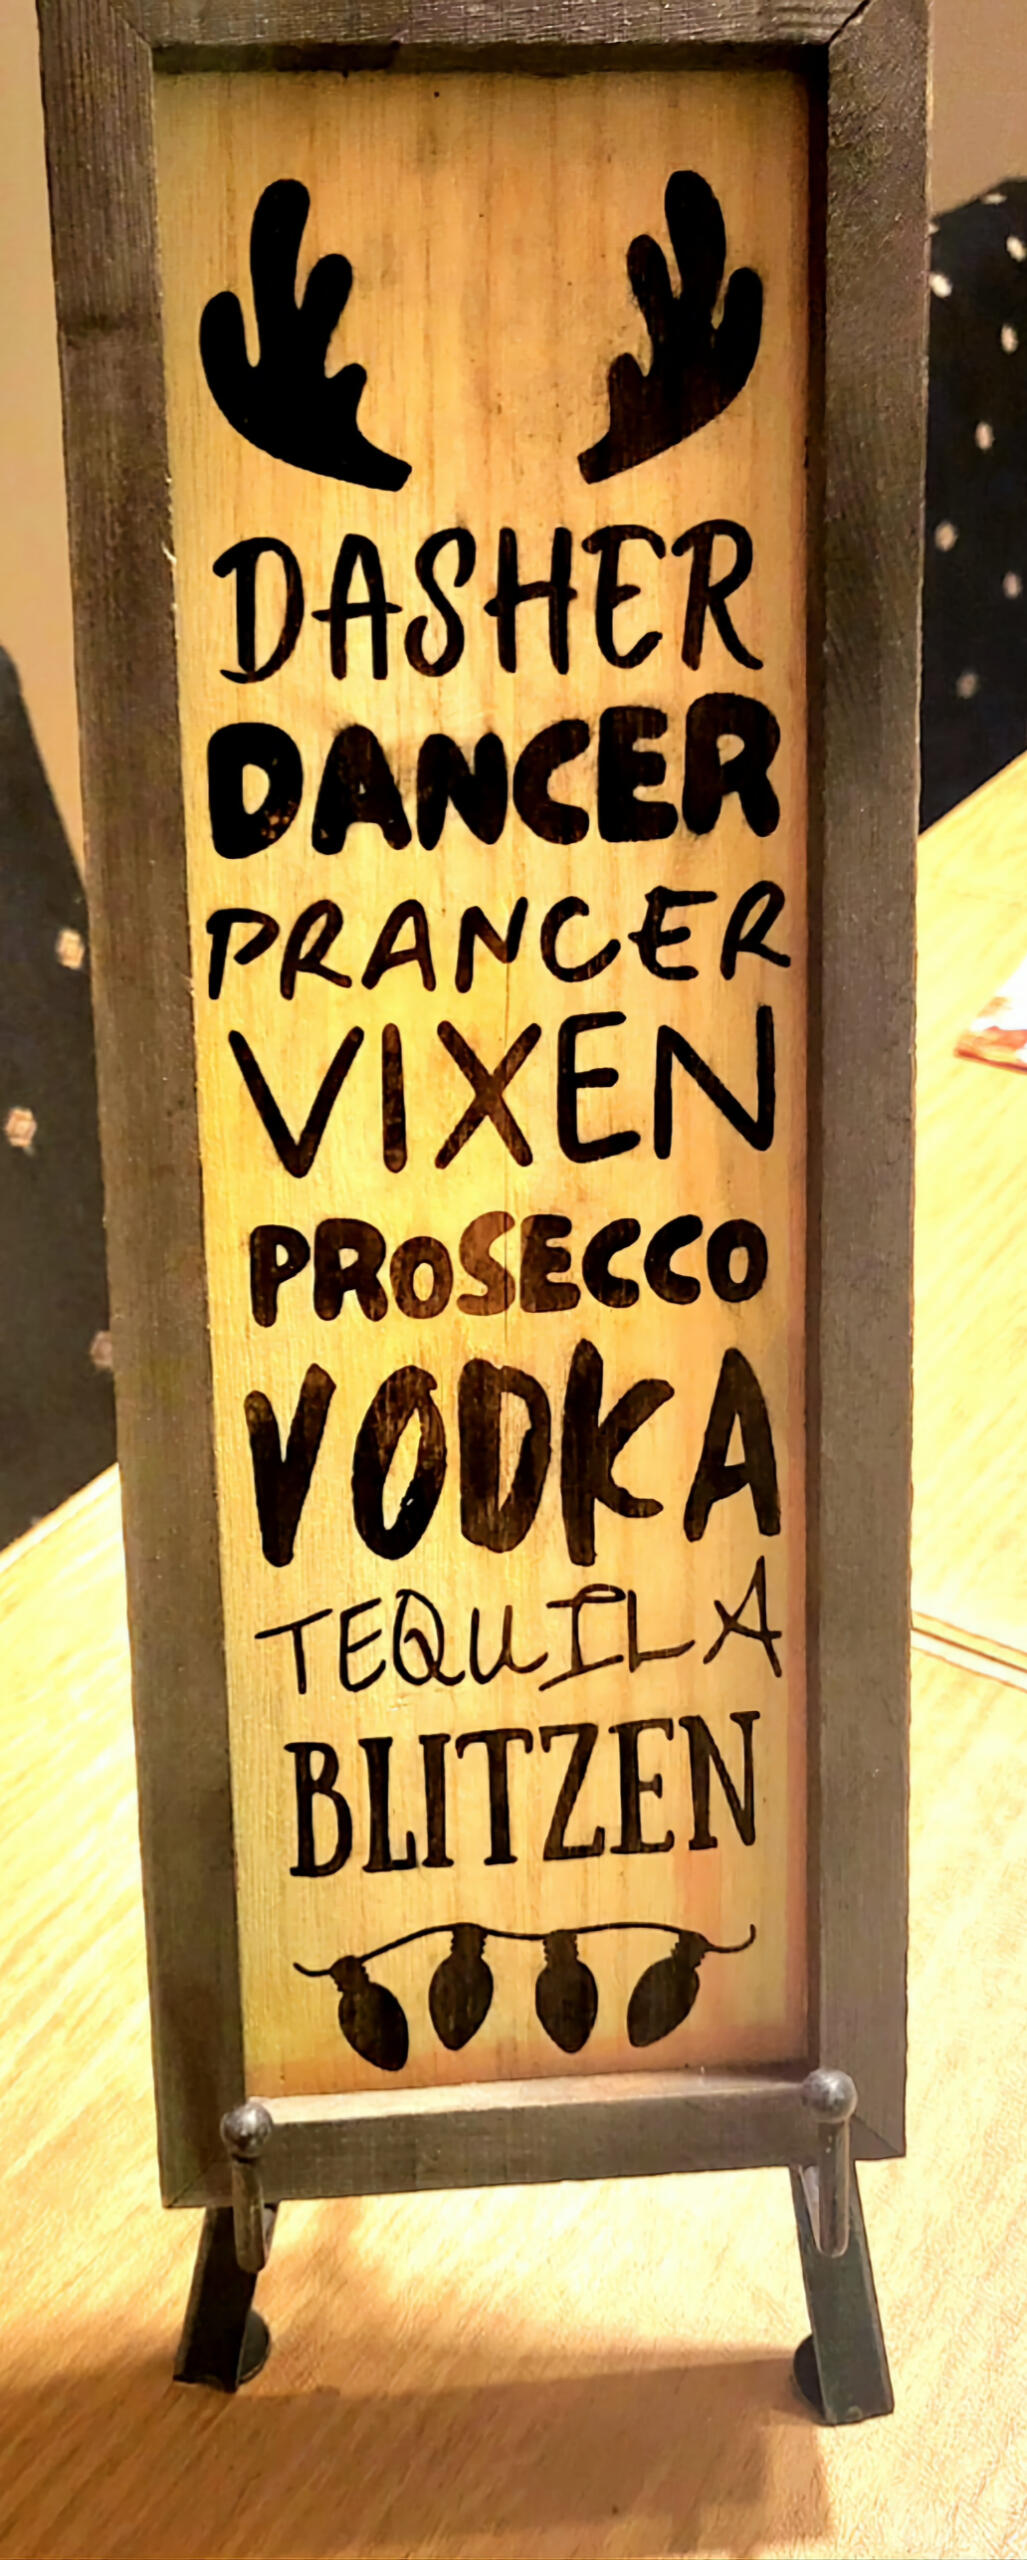 DASHER
DANCER
PRANCER
VIXEN
PROSECCO
VODKA
TEQUILA
BLITZEN